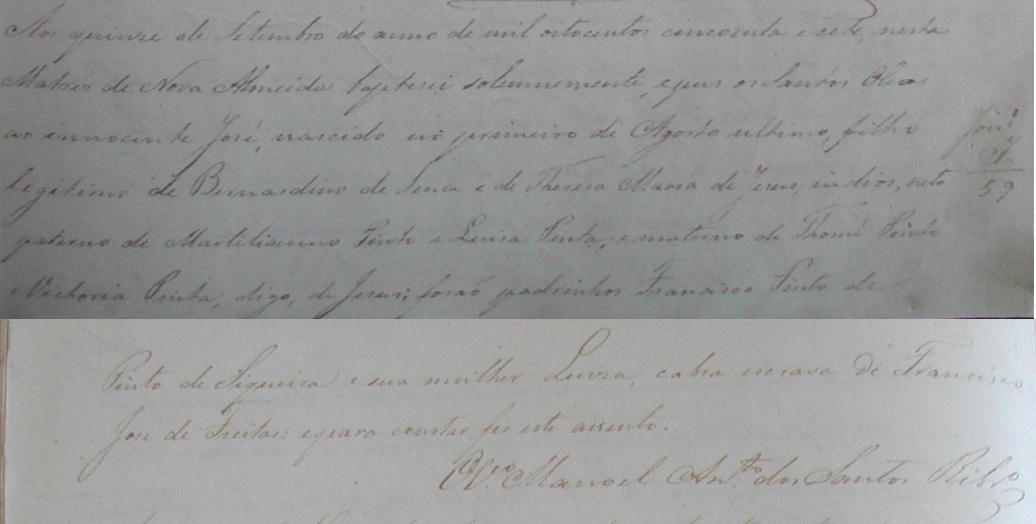 Aos quinze de Setembro do anno de mil oitocentos cincoenta e sete, nesta
Matriz de Nova Almeida baptisei solemnemente, e puz os Santos Oleos
ao innocente José, nascido no primeiro de Agosto ultimo, filho
legitimo de Bernardino de Sena e de Theresa Maria de Jesus, indios, neto
paterno de Pinto e Luisa Pinta, e materno de Thomé Pinto
e Victoria Pinta, digo, de Jesus; forão padrinhos Francisco Pinto de
José
I.
59
Pinto de Siqueira e sua mulher Luiza, cabra escrava de Francisco
José de Freitas: e para constar fiz este assento.
O Vº. Manoel Antº. dos Santos Ribrº